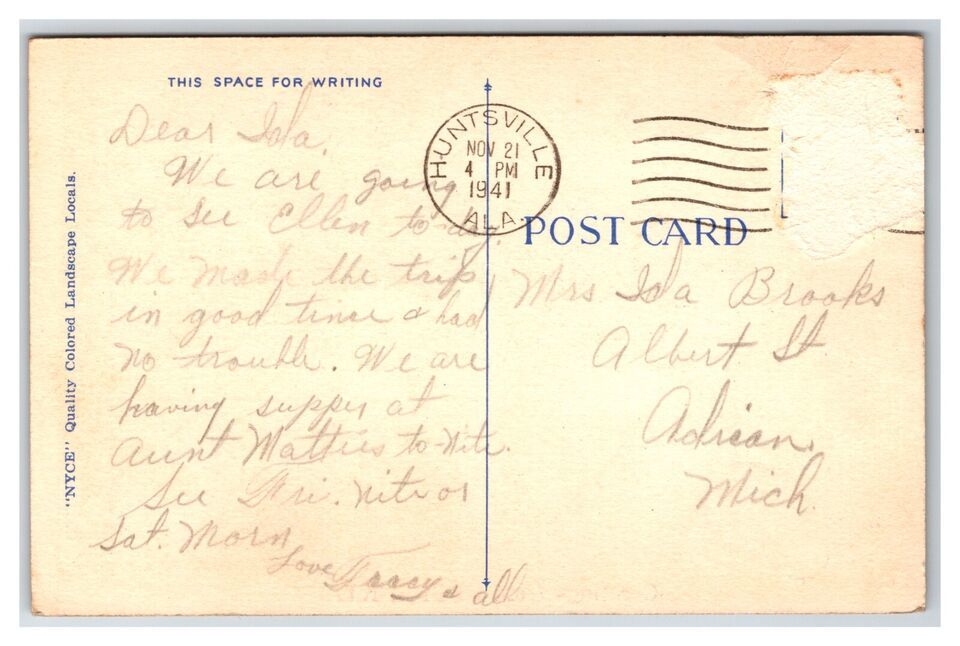 THIS SPACE FOR WRITING
Dear Ida,
We are going
to see Ellen to-day.
We made the trip
in good time & had
no trouble. We are
having supper at
Aunt Matties to-nite.
See Fri. nite or
Sat. Morn
Love Tracy & all
"NYCE" Quality Colored Landscape Locals.
HUNTSVILLE
NOV 21
4 PM
1941
ALA.
POST CARD
Mrs Ida Brooks
Albert St
Adrian,
Mich.